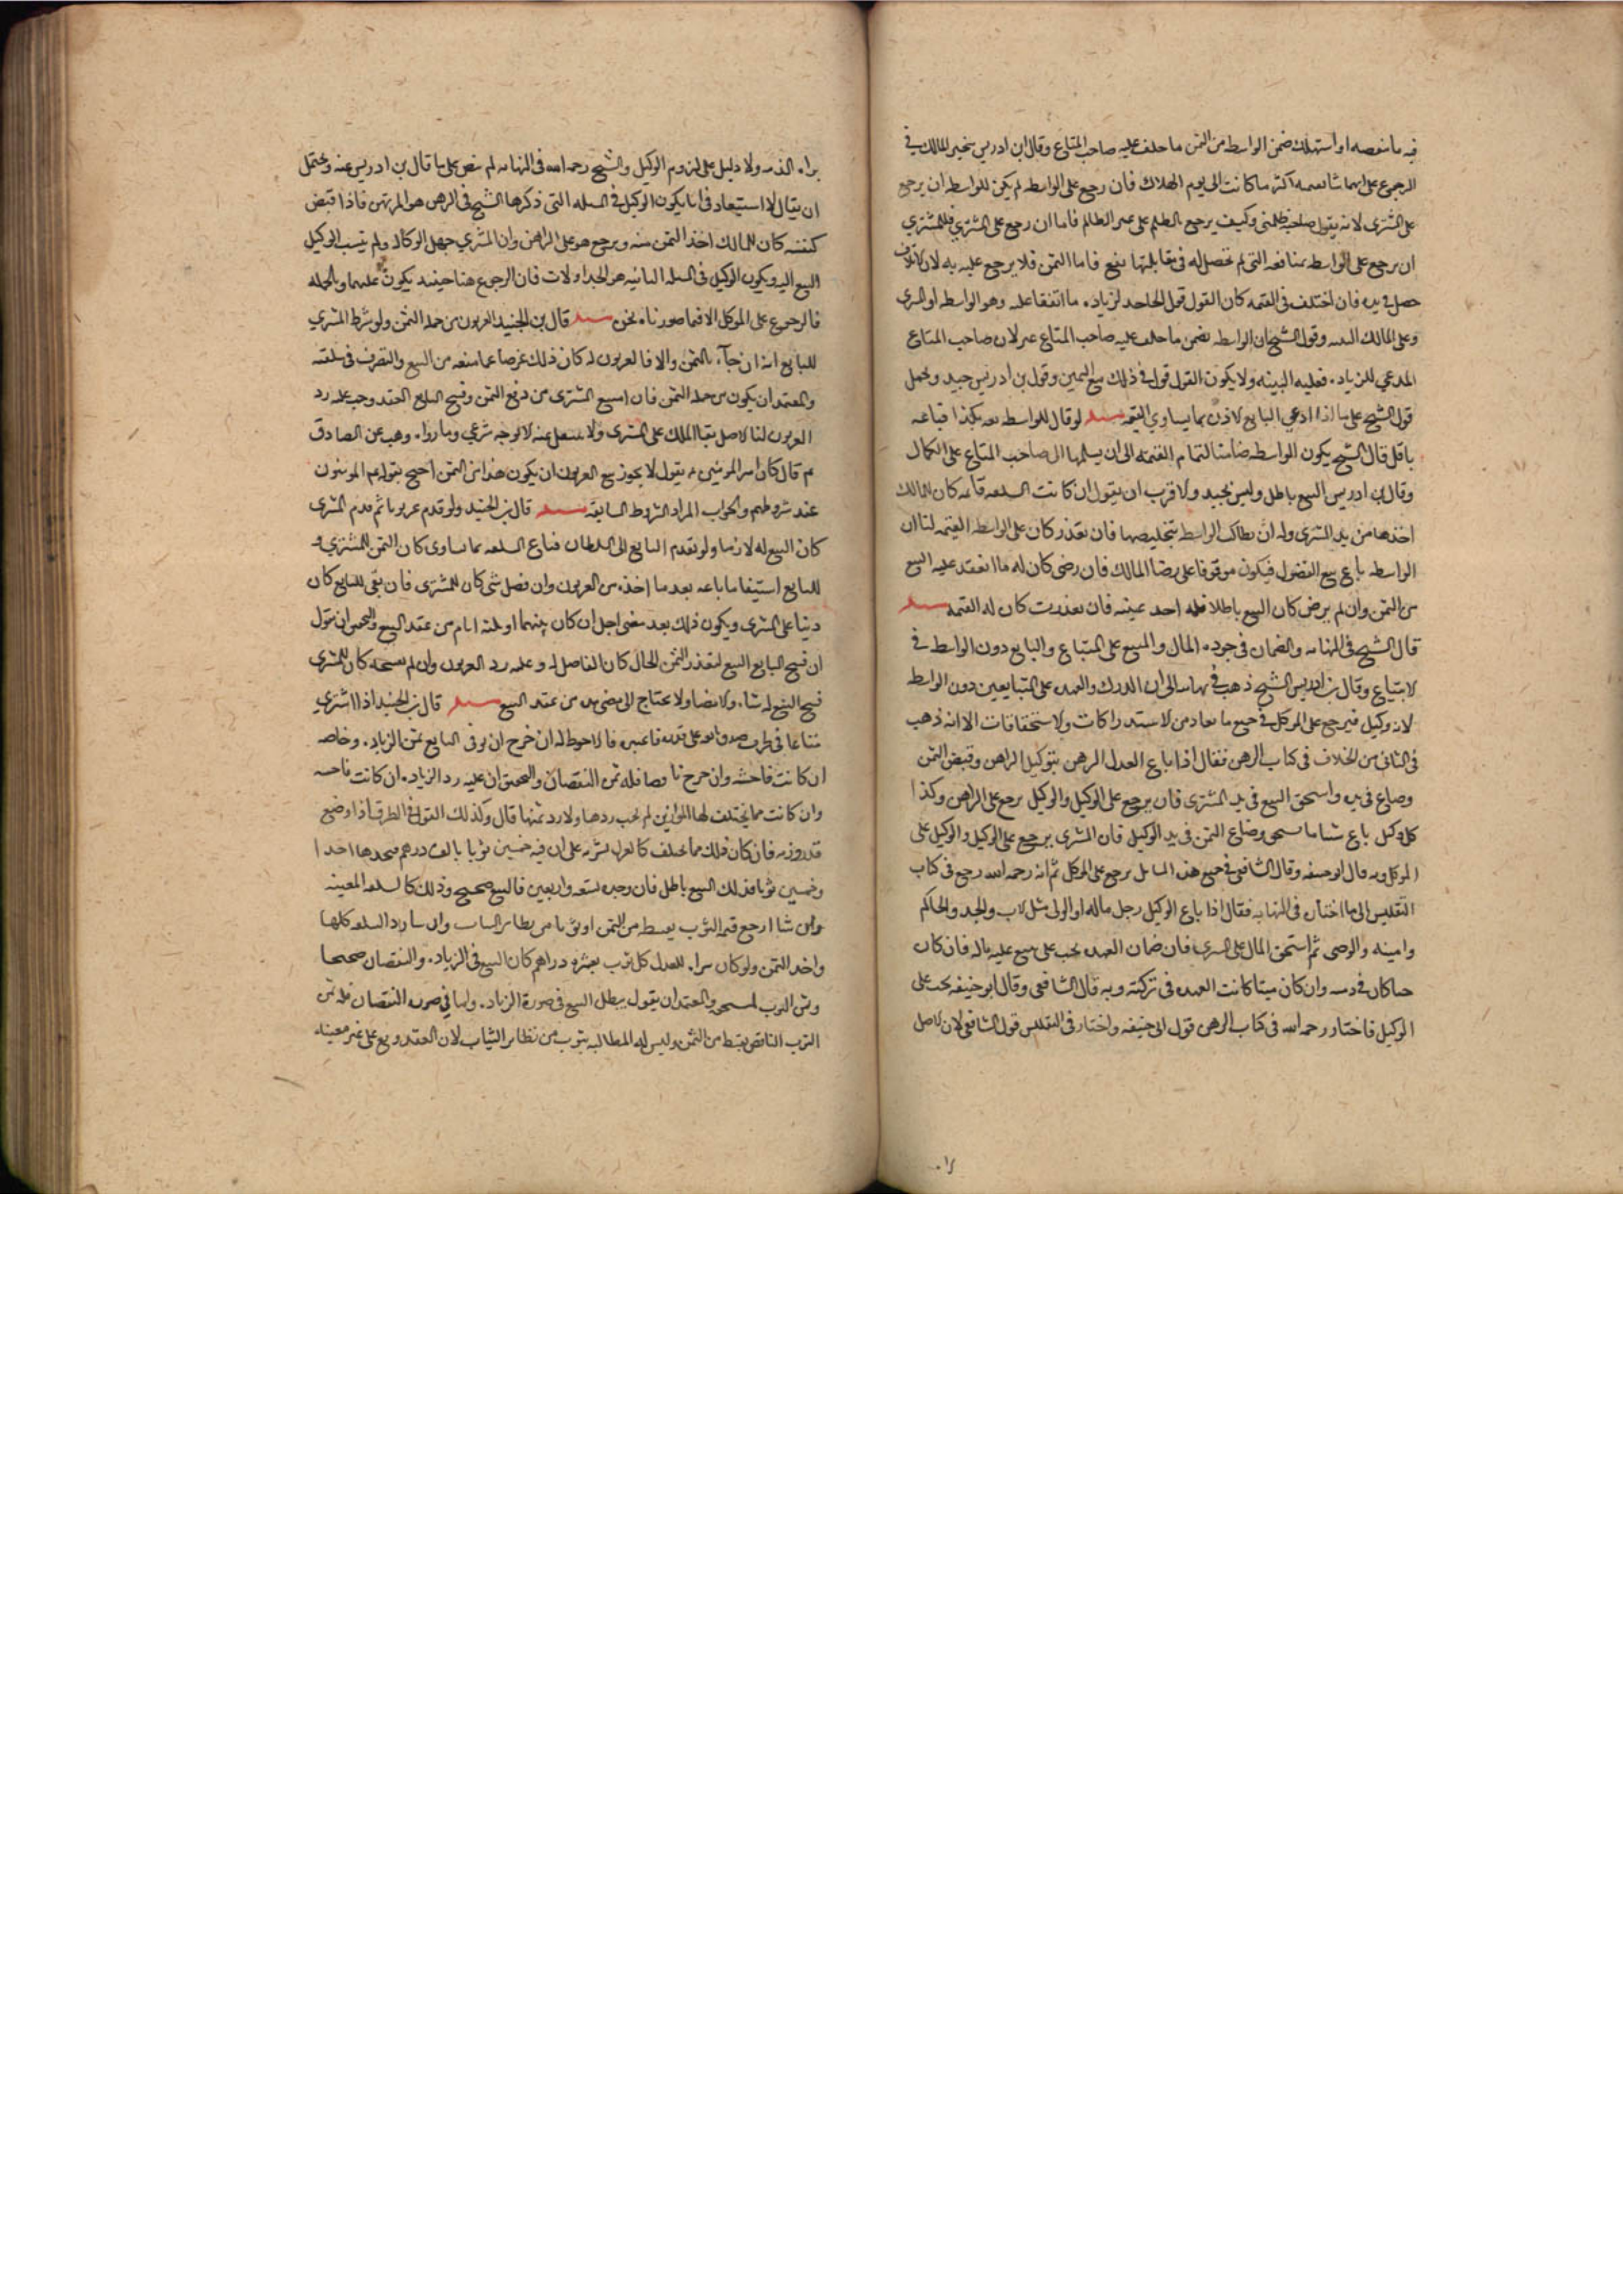 فيه ما نقصه او استهلك ضمن الواسطه من الثمن ما حلف عليه صاحب المتاع وقال ابن ادريس يتخير المالك في
الرجوع على ايهما شا بقيمته اكثر ما كانت الى يوم الهلاك فان رجع على الواسطه لم يكن للواسطه ان يرجع
على المشترى لانه يقول صاحبه ظلمنى وكيف يرجع بالظلم على غير الظالم فاما ان رجع على المشترى فللمشترى
ان يرجع على الواسطه بمنافعه التى لم تحصل له في مقابلتها نفع فاما الثمن فلا يرجع عليه به لان الاتلاف
حصل في يده فان اختلف في القيمه كان القول قول الجاحد لزياده ما اتفقا عليه وهو الواسطه او المشترى
وعلى المالك البينه وقول الشيخ ان الواسطه يضمن ما حلف عليه صاحب المتاع غير لان صاحب المتاع
المدعي للزياده فعليه البينه ولا يكون القول قوله في ذلك مع اليمين وقول بن ادريس جيد ويحمل
قول الشيخ على ما اذا ادعي البايع الاذن بما يساوي القيمه مسئله لو قال للواسطه بعه بكذا فباعه
باقل قال الشيخ يكون الواسطه ضامنا لتمام القيمه الى ان يسلمها الى صاحب المتاع على الكمال
وقال ابن ادريس البيع باطل وليس بجيد والاقرب ان يقول ان كانت السلعه قايمه كان للمالك
اخذها من يد المشترى وله ان يطالب الواسطه بتخليصها فان تعذر كان على الواسطه القيمه لنا ان
الواسطه باع بيع الفضول فيكون موقوفا على رضا المالك فان رضى كان له ما انعقد عليه البيع
من الثمن وان لم يرض كان البيع باطلا فله اخذ عينه فان تعذرت كان له القيمه مسئله
قال الشيخ في النهايه والضمان في جوده المال والمبيع على المبتاع والبايع دون الواسطه في
الابتياع وقال بن ادريس الشيخ ذهب في نهايته الى ان الدرك والعهده على المتبايعين دون الواسطه
لانه وكيل فيرجع على الموكل في جميع ما يعاد من الاستدراكات والاستحقاقات الا انه ذهب
في الثانى من الخلاف في كتاب الرهن فقال اذا باع العدل الرهن بتوكيل الراهن وقبض الثمن
وضاع في يده واستحق المبيع في يد المشترى فان يرجع على الوكيل والوكيل يرجع على الراهن وكذا
كل وكيل باع شيئا فاستحق وضاع الثمن في يد الوكيل فان المشترى يرجع على الوكيل والوكيل على
الموكل وبه قال ابو حنيفه وقال الشافعى في جميع هذه المسايل يرجع على الموكل ثم انه رحمه الله رجع في كتاب
التفليس الى ما اختاره في النهايه فقال اذا باع الوكيل رجل ماله او الولى مثل الاب والجد والحاكم
وامينه والوصى ثم استحق المال على المشترى فان ضمان العهده يجب على من بيع عليه ماله فان كان
حيا كان في ذمته وان كان ميتا كانت العهده في تركته وبه قال الشافعى وقال ابو حنيفه يجب على
الوكيل فاختار رحمه الله في كتاب الرهن قول ابى حنيفه واختار في التفليس قول الشافعى لان الاصل
براه
براه الذمه ولا دليل على لزوم الوكيل والشيخ رحمه الله في النهايه لم ينص على ما قال بن ادريس عنه ويحتمل
ان يقال لا استبعاد في ان يكون الوكيل في المسله التى ذكرها الشيخ في الرهن هو المرتهن فاذا قبض
كان للمالك اخذ الثمن منه ويرجع هو على الراهن وان المشتري جهل الوكاله ولم ينسب الوكيل
البيع اليه ويكون الوكيل في المسله الثانيه هو الجد او الاب فان الرجوع هنا حينئذ يكون عليهما وبالجمله
فالرجوع على الموكل الا فيما صورناه نحن مسئله قال بن الجنيد العربون من جمله الثمن ولو شرط المشتري
للبايع انه ان جآء بالثمن والا فالعربون له كان ذلك عوضا عما منعه من البيع والتصرف في سلعته
والمعتمد ان يكون من جمله الثمن فان امتنع المشترى من دفع الثمن وفسخ البايع العقد وجب عليه رد
العربون لنا الاصل بقا الملك على المشترى ولا ينتقل عنه الا بوجه شرعي وما رواه وهب عن الصادق
ع م قال كان امير المومنين ع يقول لا يجوز بيع العربون الا ان يكون هذا من الثمن احتج بقوله ع م المومنون
عند شروطهم والجواب المراد الشروط السايغه مسئله قال بن الجنيد ولو قدم عربونا ثم قدم المشترى
كان البيع له لازما ولو تقدم البايع الى السلطان فباع السلعه بما تساوى كان الثمن للمشتري و
للبايع استيفا ما باعه بعد ما اخذه من العربون وان فضل شى كان للمشترى فان بقى للبايع كان
دينا على المشترى ويكون ذلك بعد مضى اجل ان كان بينهما او ثلثه ايام من عقد البيع والتحقيق ان نقول
ان فسخ البايع البيع لتعذر الثمن الحال كان الفاضل له وعليه رد العربون وان لم يفسخه كان للمشترى
فسخ البيع ان شاء والامضا ولا يحتاج الى مضى مده من عقد البيع مسئله قال بن الجنيد اذا اشترى
متاعا في ظرف على قدره فالاحوط له ان خرج ان يوفى البايع ثمن الزياده وخاصه
ان كانت فاحشه وان خرج ناقصا فله ثمن النقصان والتحقيق ان عليه رد الزياده ان كانت فاحشه
وان كانت مما يختلف لها الموازين لم يجب ردها ولا رد ثمنها قال وكذلك القول في الظرف اذا وضع
قدر وزنه فان كان ذلك مما يختلف كالعدل يشتريه على ان فيه خمسين ثوبا بالف درهم فيجدها احدا
وخمسين ثوبا فذلك البيع باطل فان وجده تسعه واربعين فالبيع صحيح وذلك كالسلعه المعينه
وان شا ارجع قيمه الثوب بقسطه من الثمن او ثوبا من نظاير الثياب وان شا رد السلعه كلها
واخذ الثمن ولو كان شراه للعدل كل ثوب بعشره دراهم كان البيع في الزياده والنقصان صحيحا
وثمن الثوب لمستحقه والمعتمد ان يقول يبطل البيع في صورة الزياده واما في صوره النقصان فله ثمن
الثوب الناقص بقسطه من الثمن وليس له المطالبه بثوب من نظاير الثياب لان العقد وقع على غير معينه